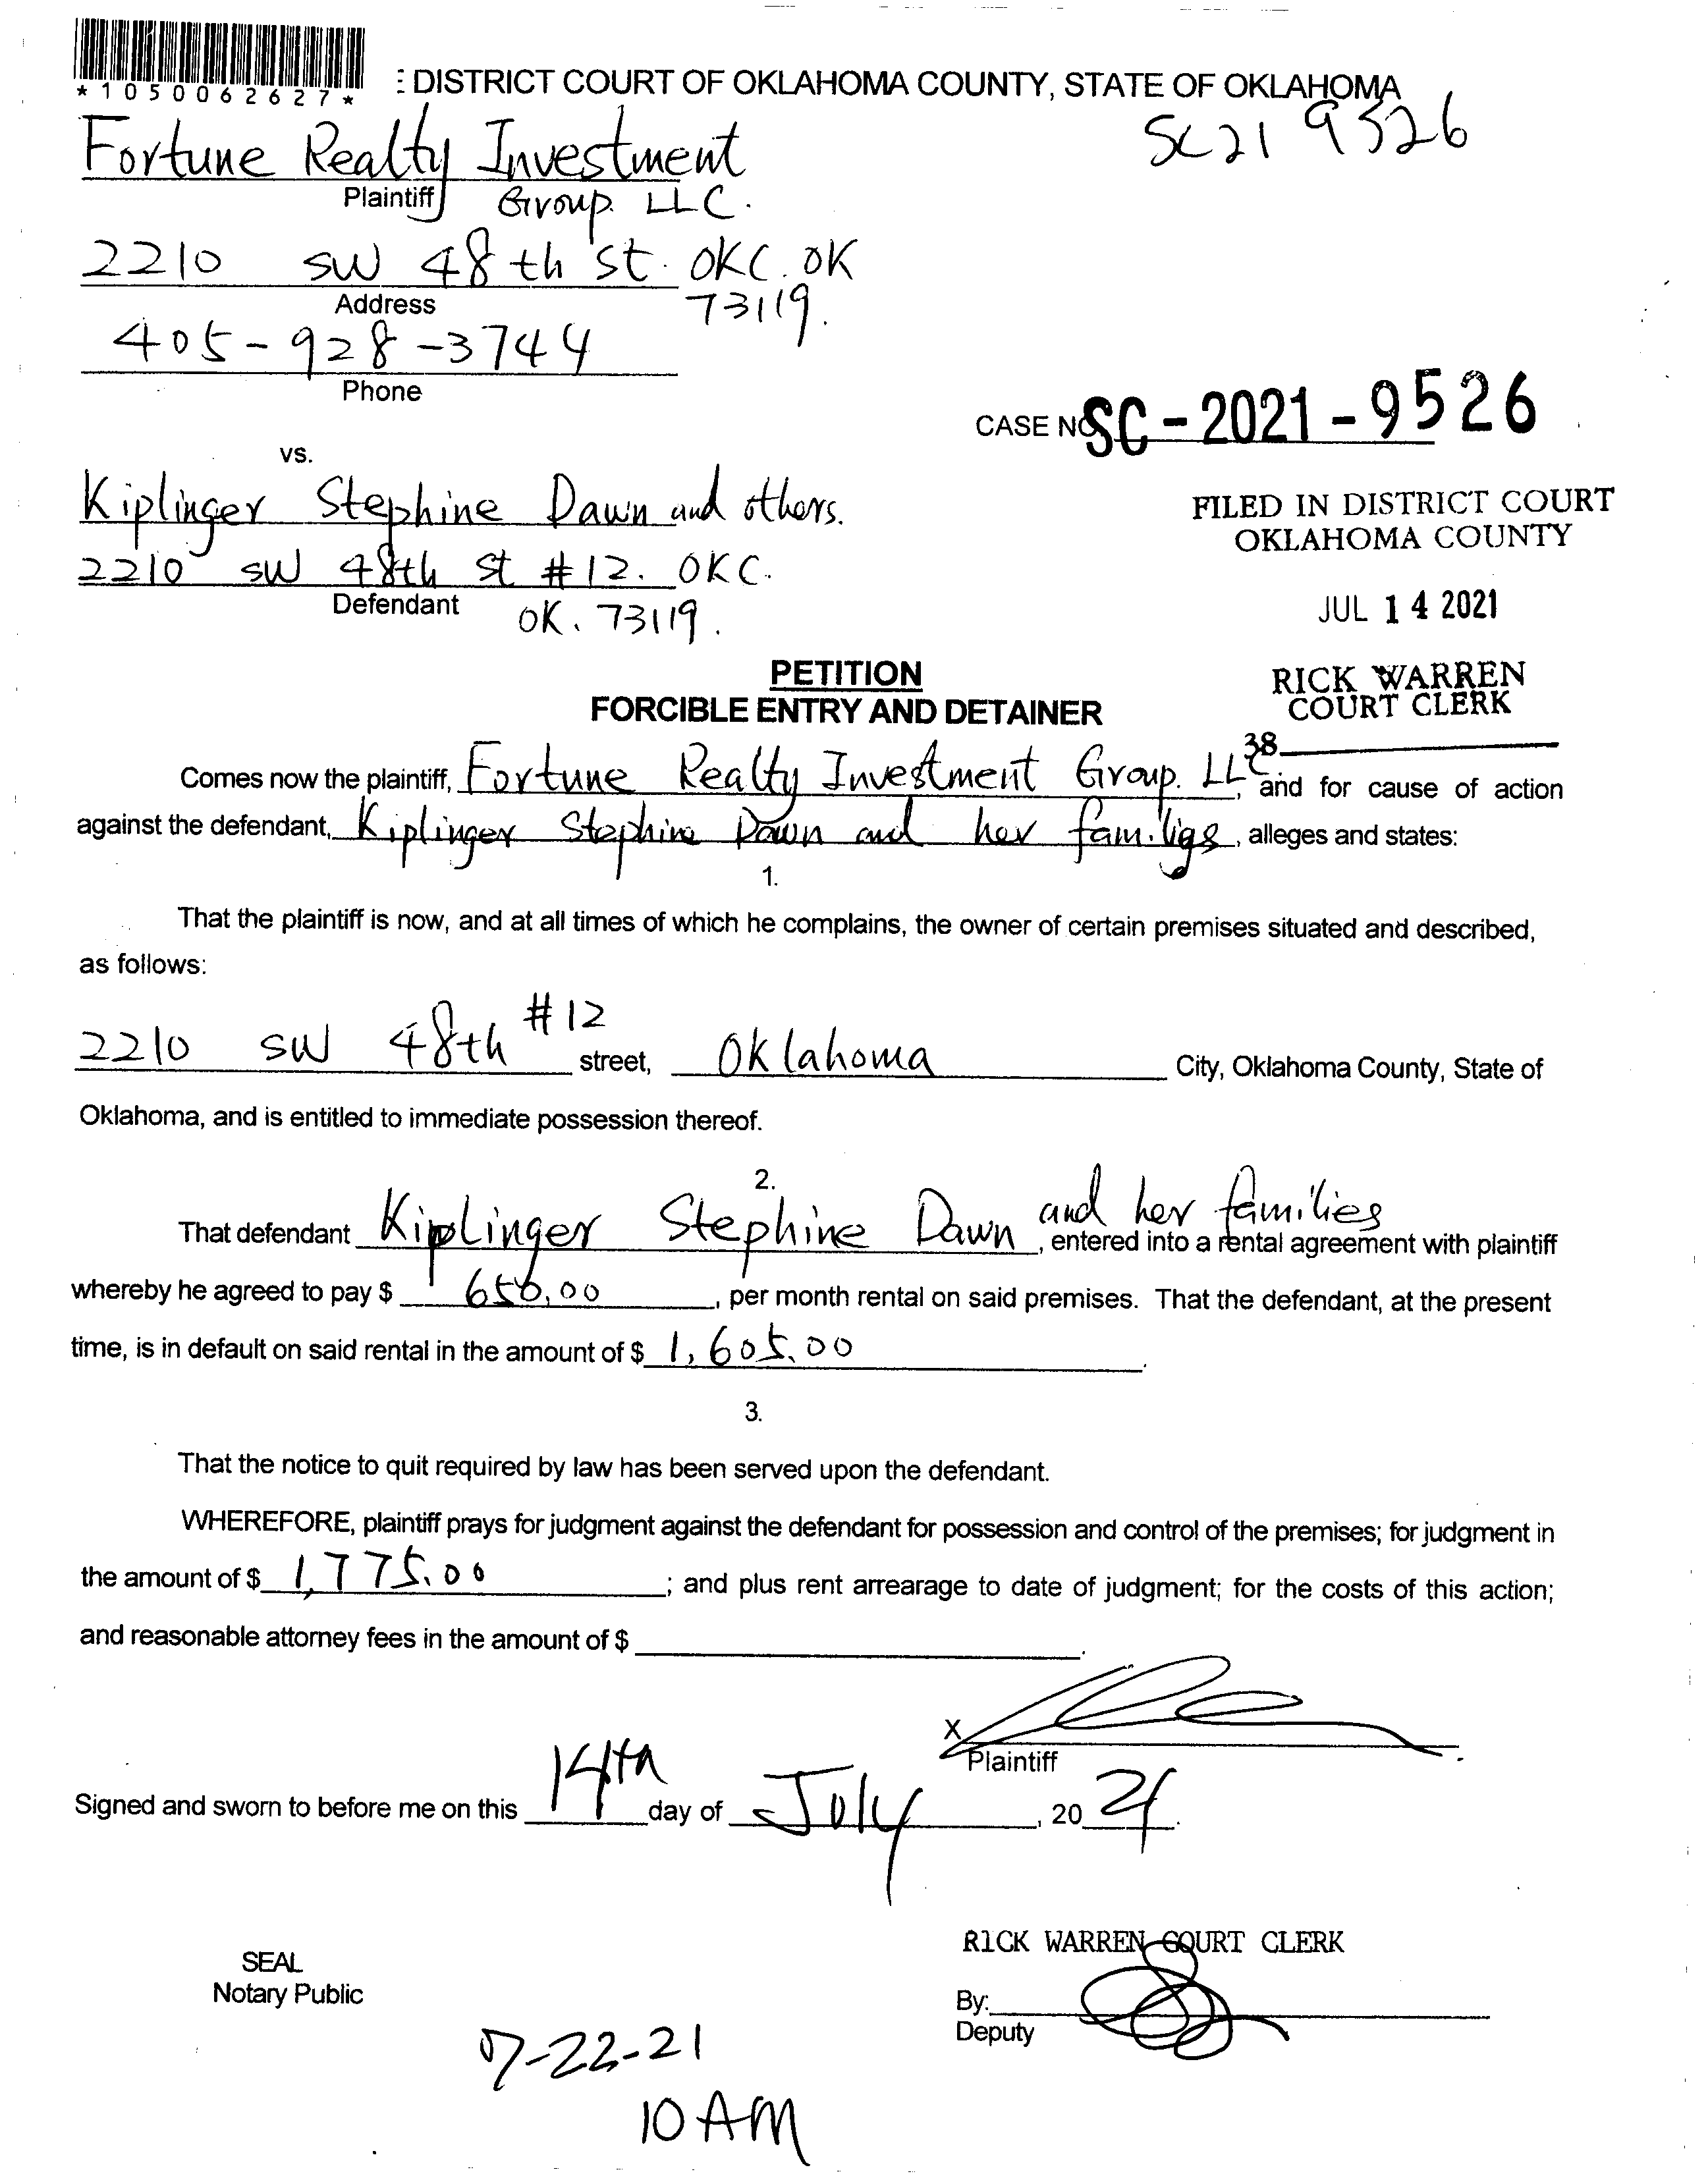 *1050062627*
: DISTRICT COURT OF OKLAHOMA COUNTY, STATE OF OKLAHOMA
SC21 9526
Fortune Realty Investment
Plaintiff Group. LLC.
2210 SW 48th St. OKC. OK
Address 73119.
405-928-3744
Phone
CASE NO. SC-2021-9526
vs.
Kiplinger Stephine Dawn and others.
2210 SW 48th St #12. OKC.
Defendant OK. 73119.
FILED IN DISTRICT COURT
OKLAHOMA COUNTY
JUL 14 2021
RICK WARREN
COURT CLERK
38
PETITION
FORCIBLE ENTRY AND DETAINER
Comes now the plaintiff, Fortune Realty Investment Group. LLC, and for cause of action
against the defendant, Kiplinger Stephine Dawn and her families, alleges and states:
1.
That the plaintiff is now, and at all times of which he complains, the owner of certain premises situated and described,
as follows:
2210 SW 48th #12 street, Oklahoma City, Oklahoma County, State of
Oklahoma, and is entitled to immediate possession thereof.
2.
That defendant Kiplinger Stephine Dawn and her families, entered into a rental agreement with plaintiff
whereby he agreed to pay $ 650.00, per month rental on said premises. That the defendant, at the present
time, is in default on said rental in the amount of $ 1,605.00.
3.
That the notice to quit required by law has been served upon the defendant.
WHEREFORE, plaintiff prays for judgment against the defendant for possession and control of the premises; for judgment in
the amount of $ 1,775.00; and plus rent arrearage to date of judgment; for the costs of this action;
and reasonable attorney fees in the amount of $ .
X
Plaintiff
Signed and sworn to before me on this 14th day of July, 2021.
RICK WARREN COURT CLERK
SEAL
Notary Public
By:
Deputy
7-22-21
10 AM